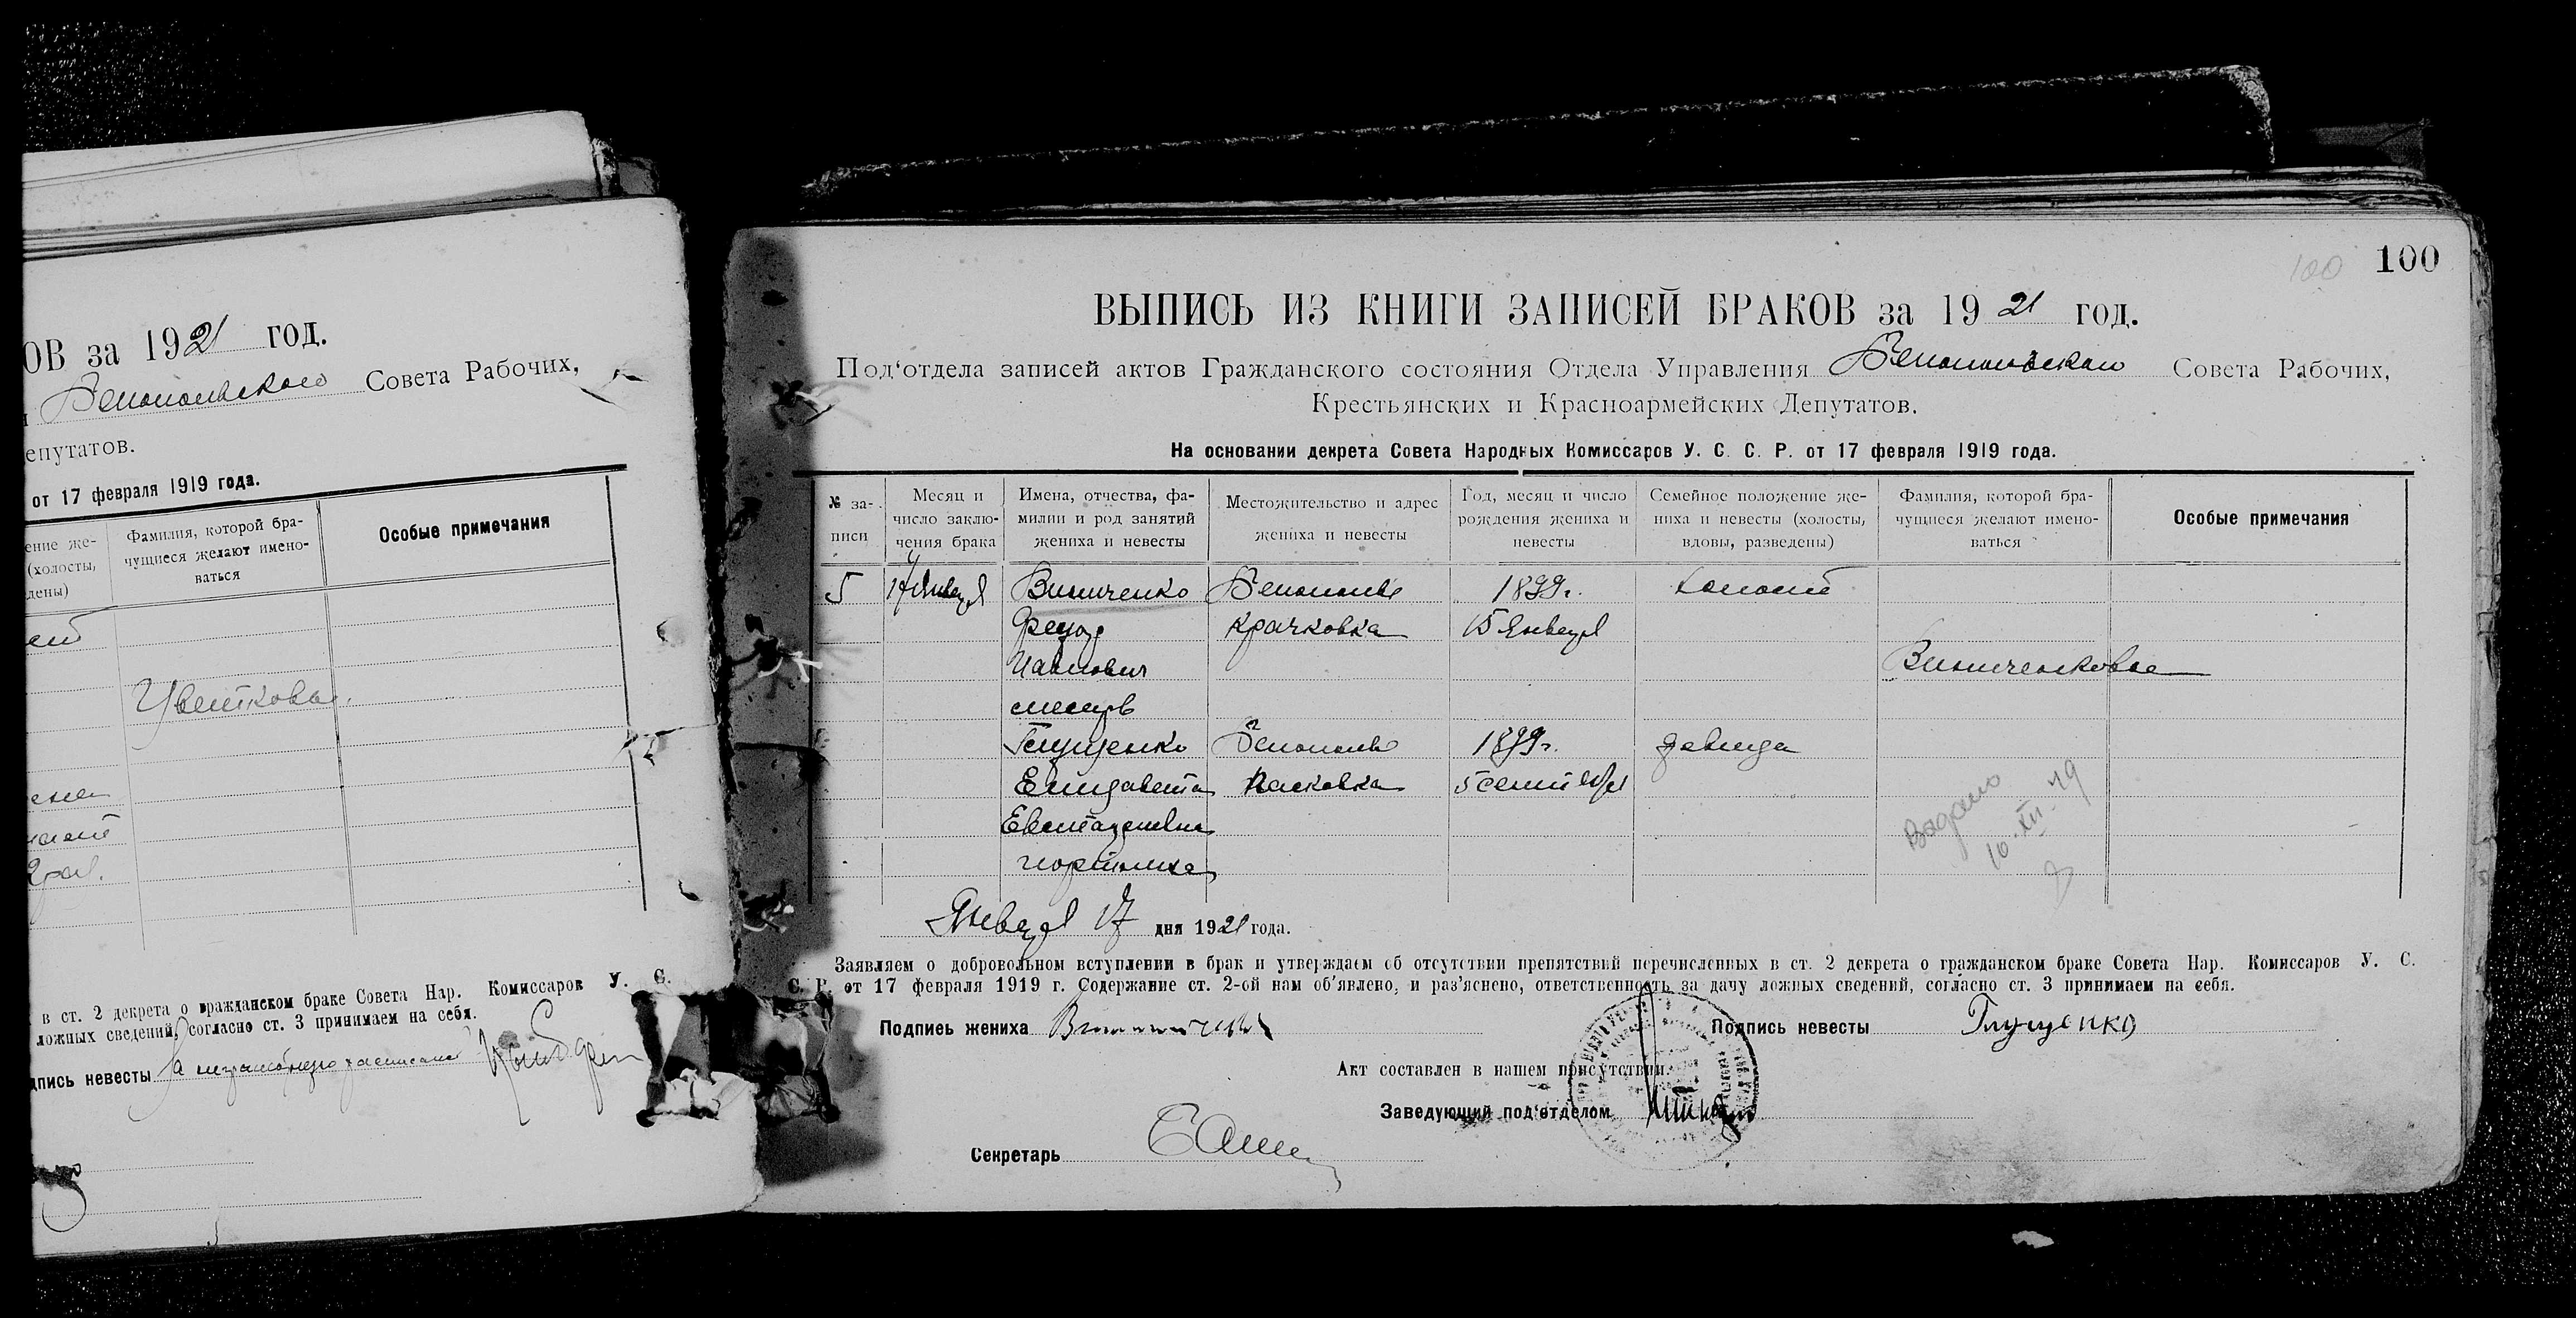 ОВ за 1921 год.
Белопольского Совета Рабочих,
епутатов.
от 17 февраля 1919 года.
ение же-
(холосты,
дены)
Фамилия, которой бра-
чущиеся желают имено-
ваться
Особые примечания
Цветковы
в ст. 2 декрета о гражданском браке Совета Нар. Комиссаров У. С.
ложных сведений, согласно ст. 3 принимаем на себя.
дпись невесты за неграмотную расписался
100
100
ВЫПИСЬ ИЗ КНИГИ ЗАПИСЕЙ БРАКОВ за 1921 год.
Под'отдела записей актов Гражданского состояния Отдела Управления Белопольского Совета Рабочих,
Крестьянских и Красноармейских Депутатов.
На основании декрета Совета Народных Комиссаров У. С. С. Р. от 17 февраля 1919 года.
№ за-
писи
Месяц и
число заклю-
чения брака
Имена, отчества, фа-
милии и род занятий
жениха и невесты
Местожительство и адрес
жениха и невесты
Год, месяц и число
рождения жениха и
невесты
Семейное положение же-
ниха и невесты (холосты,
вдовы, разведены)
Фамилия, которой бра-
чущиеся желают имено-
ваться
Особые примечания
5 17 Января Винниченко Белополье 1899 г. холост
Федор Крачковка 15 Января
Павлович Винниченковы
слесарь
Глущенко Белополье 1899 г. девица
Елизавета Пасковка 5 сентября
Евстафьевна
портниха
Выдано
10. XII. 49
Января 17 дня 1921 года.
Заявляем о добровольном вступлении в брак и утверждаем об отсутствии препятствий перечисленных в ст. 2 декрета о гражданском браке Совета Нар. Комиссаров У. С.
С. Р. от 17 февраля 1919 г. Содержание ст. 2-ой нам об'явлено, и раз'яснено, ответственность за дачу ложных сведений, согласно ст. 3 принимаем на себя.
Подпись жениха Винниченко Подпись невесты Глущенко
Акт составлен в нашем присутствии.
Заведующий под'отделом
Секретарь